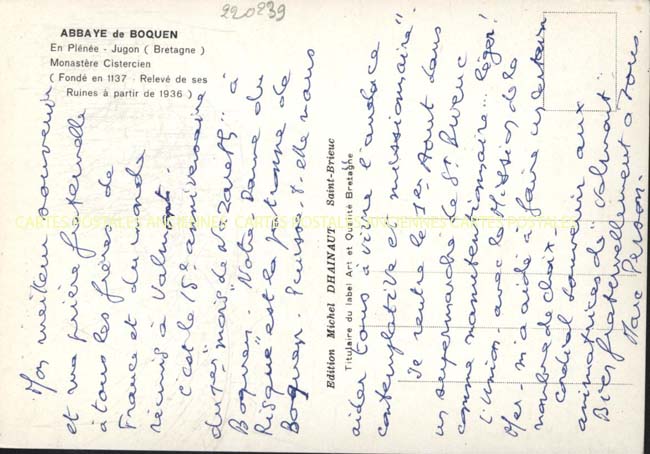 220239
ABBAYE de BOQUEN
En Plénée - Jugon ( Bretagne )
Monastère Cistercien
( Fondé en 1137 - Relevé de ses
Ruines à partir de 1936 )
Mon meilleur souvenir
et ma prière fraternelle
à tous les frères de
France et du monde
réunis à Valmont.
c'est le 15e anniversaire
du "mois de Nazareth" à
Boquen. "Notre Dame du
Risque" est la patronne de
Boquen. Puisse-t-elle nous
Edition Michel DHAINAUT Saint-Brieuc
Titulaire du label Art et Qualité Bretagne
aider tous à vivre l'audace
contemplative et missionnaire".
Je rentre le 1er Août dans
un supermarché de St Brieuc
comme manutentionnaire... léger!
L'union avec la Mission de la
Mer m'a aidé à faire un certain
nombre de choix
Cordial souvenir aux
animatrices de Valmont
Bien fraternellement à tous.
Marc Person.
CARTES POSTALES ANCIENNES CARTES POSTALES ANCIENNES CARTES POSTALES ANCIENNES